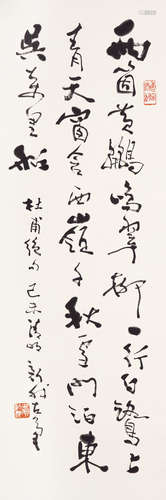 兩箇黃鸝鳴翠柳一行白鷺上
青天窗含西嶺千秋雪門泊東
吳萬里船
杜甫絕句己未清明新我左筆